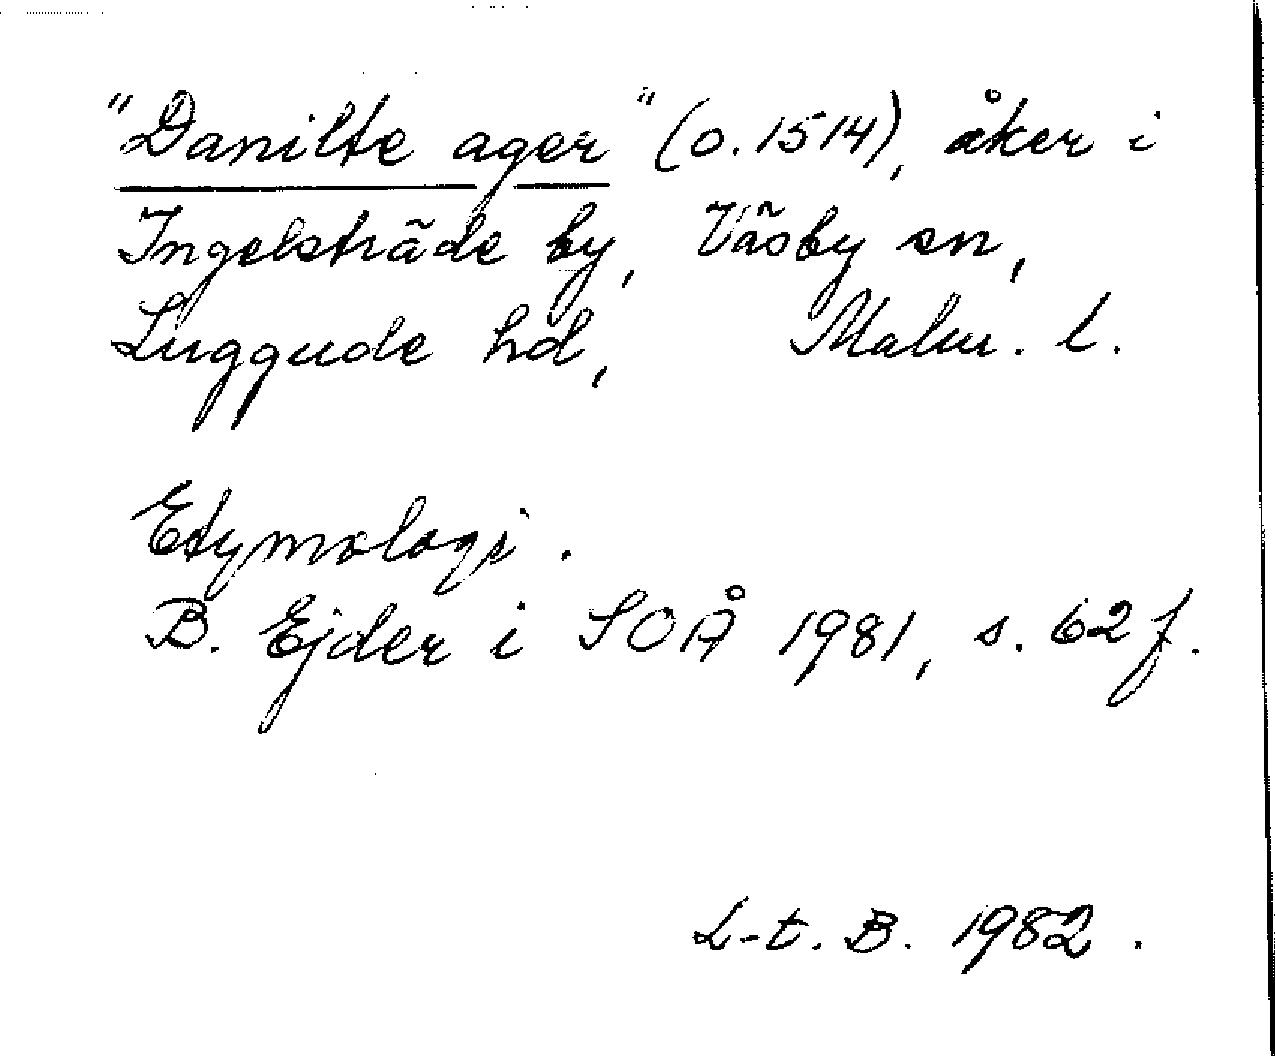 "Danilte ager" (o. 1514), åker i
Ingelsträde by, Väsby sn,
Luggude hd, Malm. l.
Etymologi.
B. Ejder i SOÅ 1981, s. 62 f.
L-t. B. 1982.